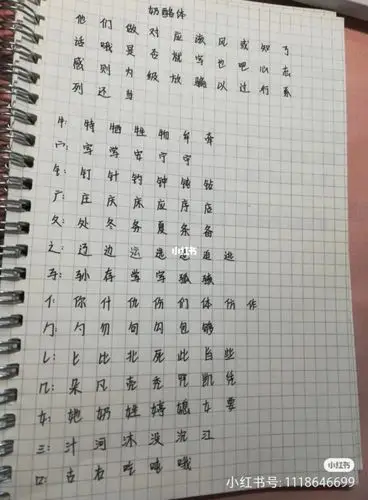 奶酪体
他 们 做 对 应 该 风 或 知 了
话 哦 是 否 就 写 也 吧 心 态
感 则 为 级 放 输 以 过 行 系
列 还 与
牛: 特 牺 牲 物 牟 奔
宀: 字 学 安 宁 守
钅: 钉 针 钓 钟 钱 钻
广: 庄 庆 床 应 序 店
夂: 处 冬 务 夏 条 备
辶: 边 运 选 追 逃
子: 孙 存 学 字 孤 孩
亻: 你 什 优 伤 们 体 仿 作
勹: 勺 勿 句 勾 包 够
匕: 匕 比 北 死 此 旨 些
几: 朵 凡 壳 秃 咒 凯 凭
女: 她 奶 娃 婷 媳 女 要
三: 汁 河 沐 没 沉 江
口: 古 右 吃 哦
小红书
小红书
小红书号: 1118646699